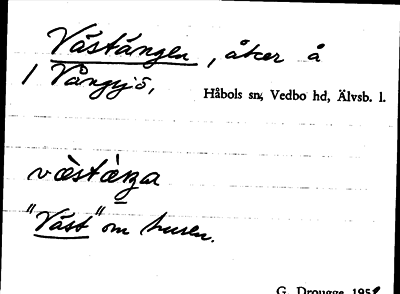 Västängen, åker å
1 Vångsjö,
Håbols sn, Vedbo hd, Älvsb. l.
væ̀stæ̀ŋa
"Väst" om husen.
G. Drougge 1951